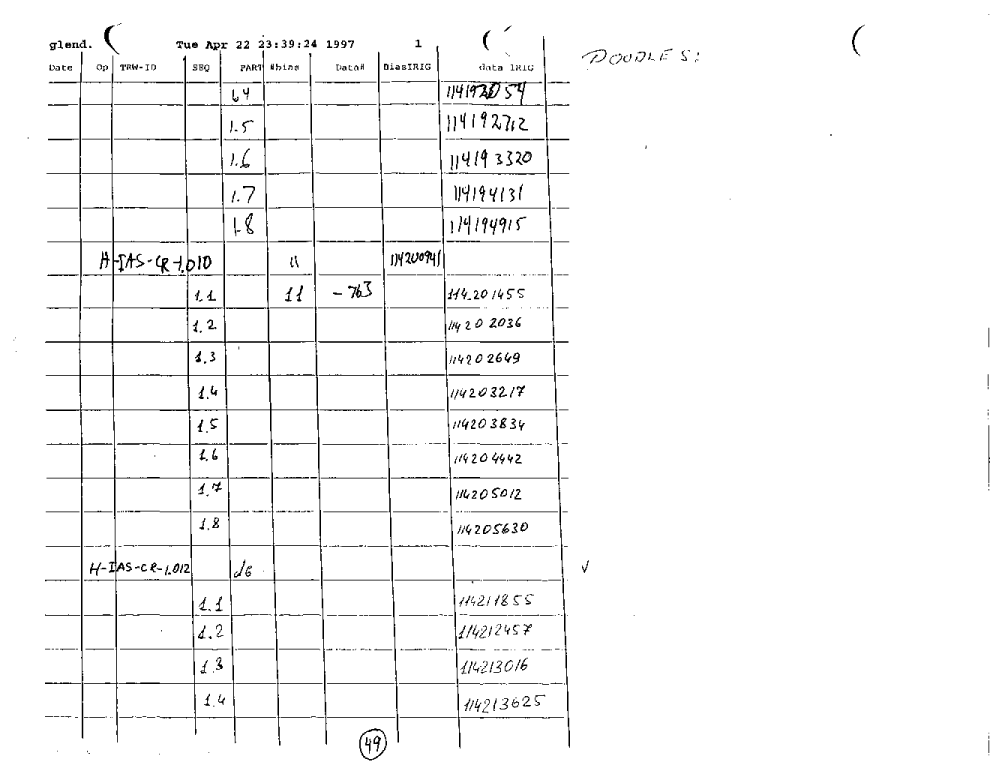 glend. Tue Apr 22 23:39:24 1997 1
DOODLES:
Date Op TRW-ID SEQ PART #bias Data# BiasIRIG data IRIG
1.4 114192054
1.5 114192712
1.6 114193320
1.7 114194131
1.8 114194915
H-IAS-CR-1.010 11 114200941
1.1 11 -763 114201455
1.2 114202036
1.3 114202649
1.4 114203217
1.5 114203834
1.6 114204442
1.7 114205012
1.8 114205630
H-IAS-CR-1.012 √
1.1 114211855
1.2 114212457
1.3 114213016
1.4 114213625
49